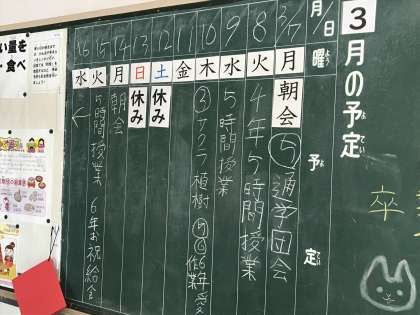 3月の予定
よてい
月/日
曜 よう
予定 よてい
3/7 月 朝会 ⑤通学団会
8 火 4年5時間授業
9 水 5時間授業
10 木 ③サクラ植樹 ⑤⑥6年
作業
11 金
12 土 休み
13 日 休み
14 月 朝会
15 火 5時間授業 6年お祝給食
16 水 ↓
卒